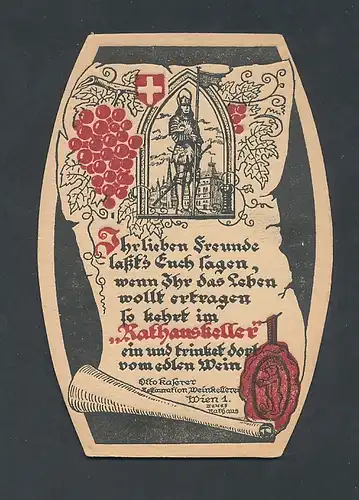 Ihr lieben Freunde
laßt's Euch sagen,
wenn Ihr das Leben
wollt ertragen
so kehrt im
„Rathauskeller"
ein und trinket dort
vom edlen Wein.
Otto Kaserer
Restauration Weinkellerei
Wien 1.
Neues
Rathaus